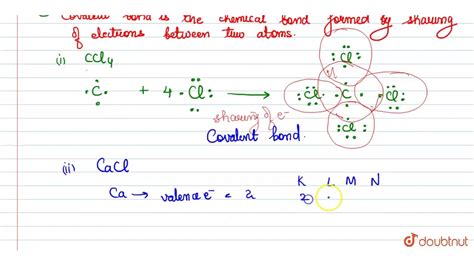 Covalent bond is the chemical bond formed by sharing
of electrons between two atoms.
(i) CCl4
C + 4 Cl: → :Cl C Cl:
Cl
Cl
sharing of e-
Covalent bond.
(ii) CaCl
K L M N
Ca → valence e- = 2 2
doubtnut